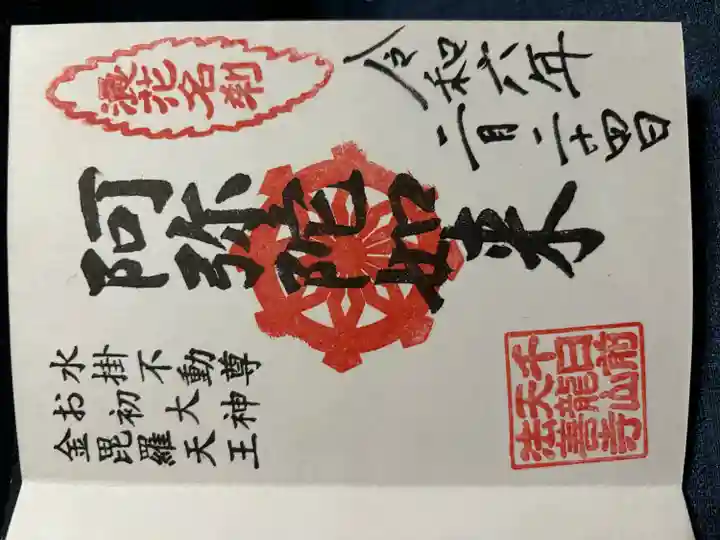 令和六年
二月二十四日
浪花名刹
阿弥陀如来
水掛不動尊
お初大神
金毘羅天王
千日前
天龍山
法善寺